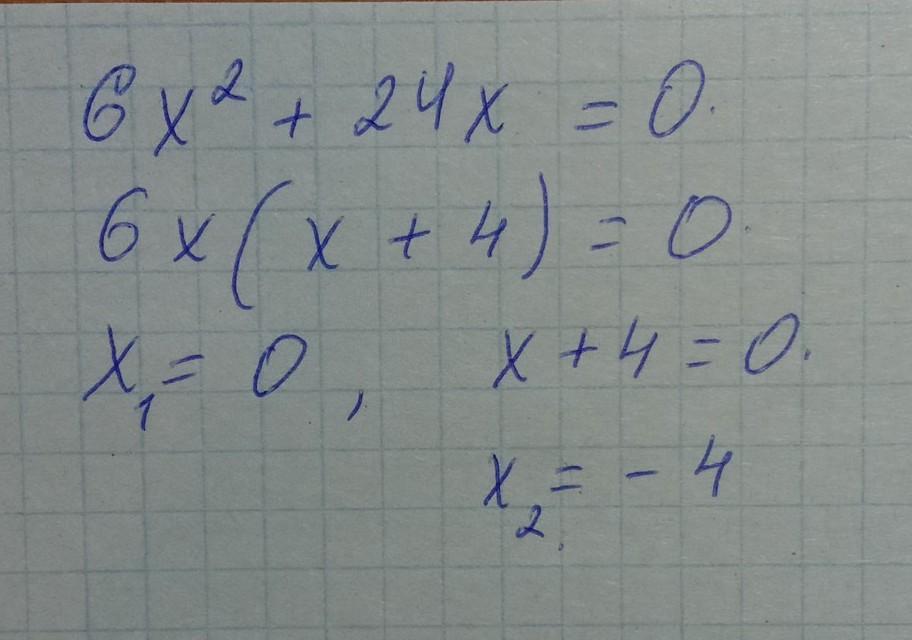 6x² + 24x = 0.
6x(x + 4) = 0.
x₁ = 0, x + 4 = 0.
x₂ = - 4